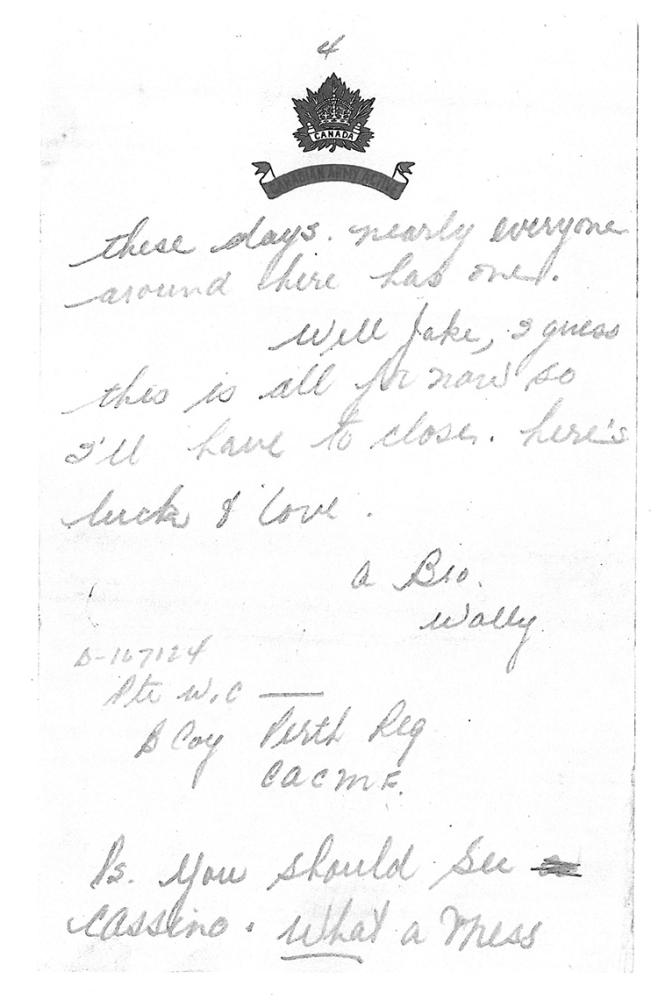 4
CANADA
CANADIAN ARMY ACTIVE
these days. nearly everyone
around here has one.
Well Jake, I guess
this is all for now so
I'll have to close. here's
luck & love.
a Bro.
Wally
Pte W.C ——
B Coy Perth Reg
CACMF.
Ps. You should see
Cassino. What a Mess